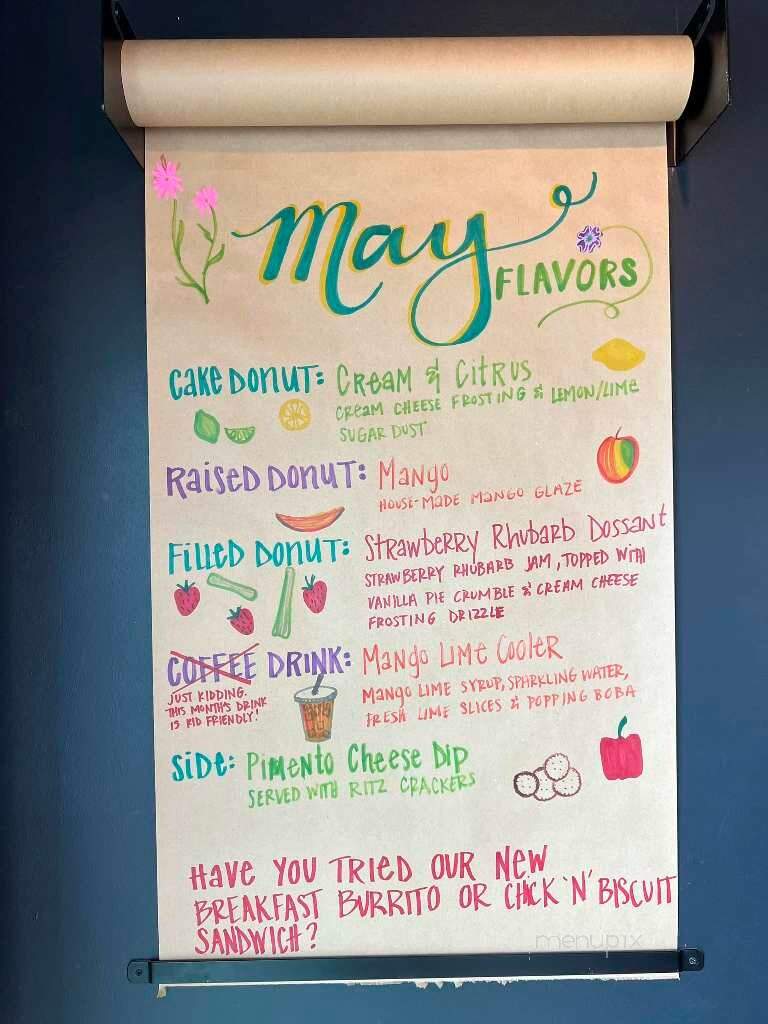 May
FLAVORS
CAKE DONUT: CREAM & CITRUS
CREAM CHEESE FROSTING & LEMON/LIME
SUGAR DUST
RAISED DONUT: MANGO
HOUSE-MADE MANGO GLAZE
FILLED DONUT: STRAWBERRY RHUBARB DOSSANT
STRAWBERRY RHUBARB JAM, TOPPED WITH
VANILLA PIE CRUMBLE & CREAM CHEESE
FROSTING DRIZZLE
COFFEE DRINK: MANGO LIME COOLER
JUST KIDDING.
THIS MONTH'S DRINK
IS KID FRIENDLY!
MANGO LIME SYRUP, SPARKLING WATER,
FRESH LIME SLICES & POPPING BOBA
SIDE: PIMENTO CHEESE DIP
SERVED WITH RITZ CRACKERS
HAVE YOU TRIED OUR NEW
BREAKFAST BURRITO OR CHICK 'N' BISCUIT
SANDWICH?
menupix